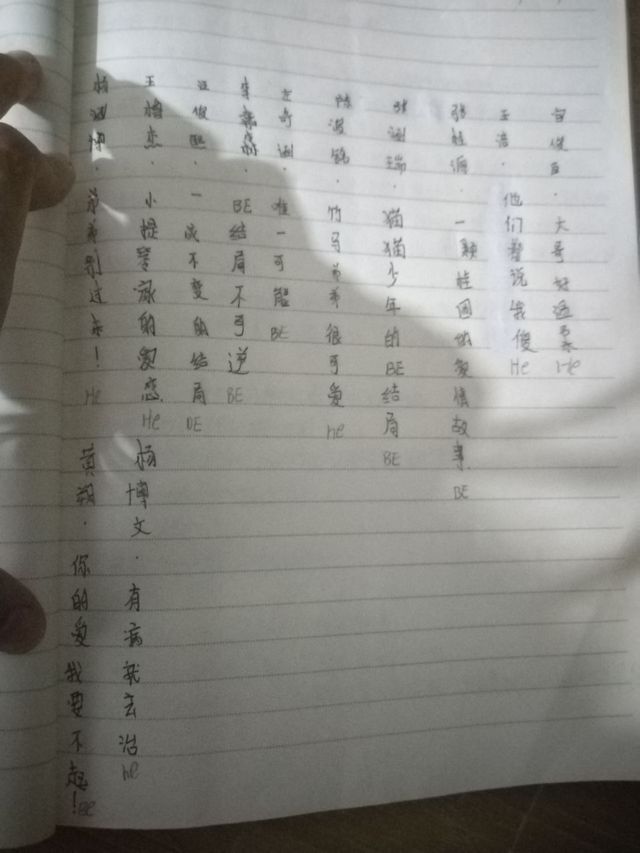 官俊臣·大哥好 He
王浩·他们都说我傻 He
张桂源·一颗桂圆的爱情故事 BE
张函瑞·猫猫少年的BE结局 BE
陈浚铭·竹马弟弟很可爱 he
左奇函·唯一可能 BE
李嘉森·BE结局不可逆 BE
汪俊熙·一成不变的结局 BE
王橹杰·小提琴家的爱恋 He 杨博文·有病就去治 he
杨涵博·弟弟别过来! He 黄朔·你的爱我要不起! BE